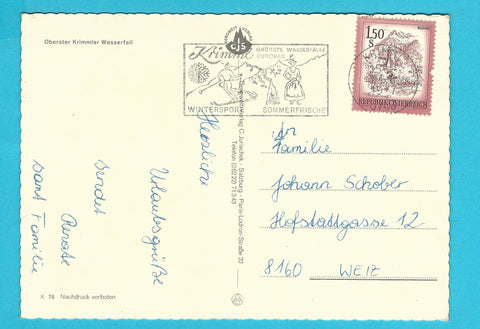 Oberster Krimmler Wasserfall
CJS
Krimml
GRÖSSTE WASSERFÄLLE
EUROPAS
WINTERSPORT
SOMMERFRISCHE
1,50
S
REPUBLIK ÖSTERREICH
Herzliche
Urlaubsgrüße
sendet
Renate
samt Familie
C. Jurischek - Salzburg - Paris-Lodron-Straße 22
Telefon (06222) 713 43
An
Familie
Johann Schober
Hofstattgasse 12
8160 WEIZ
K 76 Nachdruck verboten